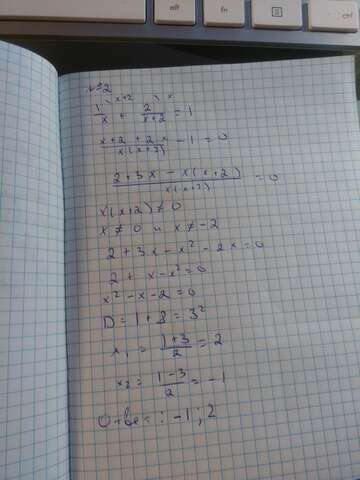 alt
fn
ctrl
№2
1/x + 2/(x+2) = 1
(x+2+2x)/(x(x+2)) - 1 = 0
(2+3x-x(x+2))/(x(x+2)) = 0
x(x+2) ≠ 0
x ≠ 0 и x ≠ -2
2+3x-x²-2x=0
2+x-x²=0
x²-x-2=0
D=1+8=3²
x₁ = (1+3)/2 = 2
x₂ = (1-3)/2 = -1
Ответ: -1; 2